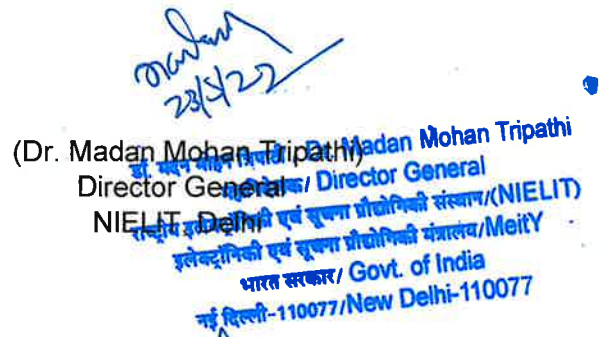 23/5/22
(Dr. Madan Mohan Tripathi)
Director General
NIELIT, Delhi
डॉ. मदन मोहन त्रिपाठी/ Dr. Madan Mohan Tripathi
महानिदेशक/ Director General
राष्ट्रीय इलेक्ट्रॉनिकी एवं सूचना प्रौद्योगिकी संस्थान/(NIELIT)
इलेक्ट्रॉनिकी एवं सूचना प्रौद्योगिकी मंत्रालय/MeitY
भारत सरकार/ Govt. of India
नई दिल्ली-110077/New Delhi-110077